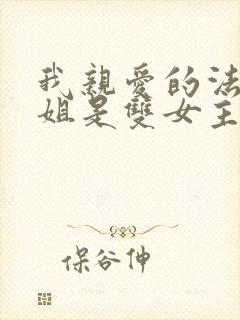 我親愛的法
姐是雙女主
保谷伸